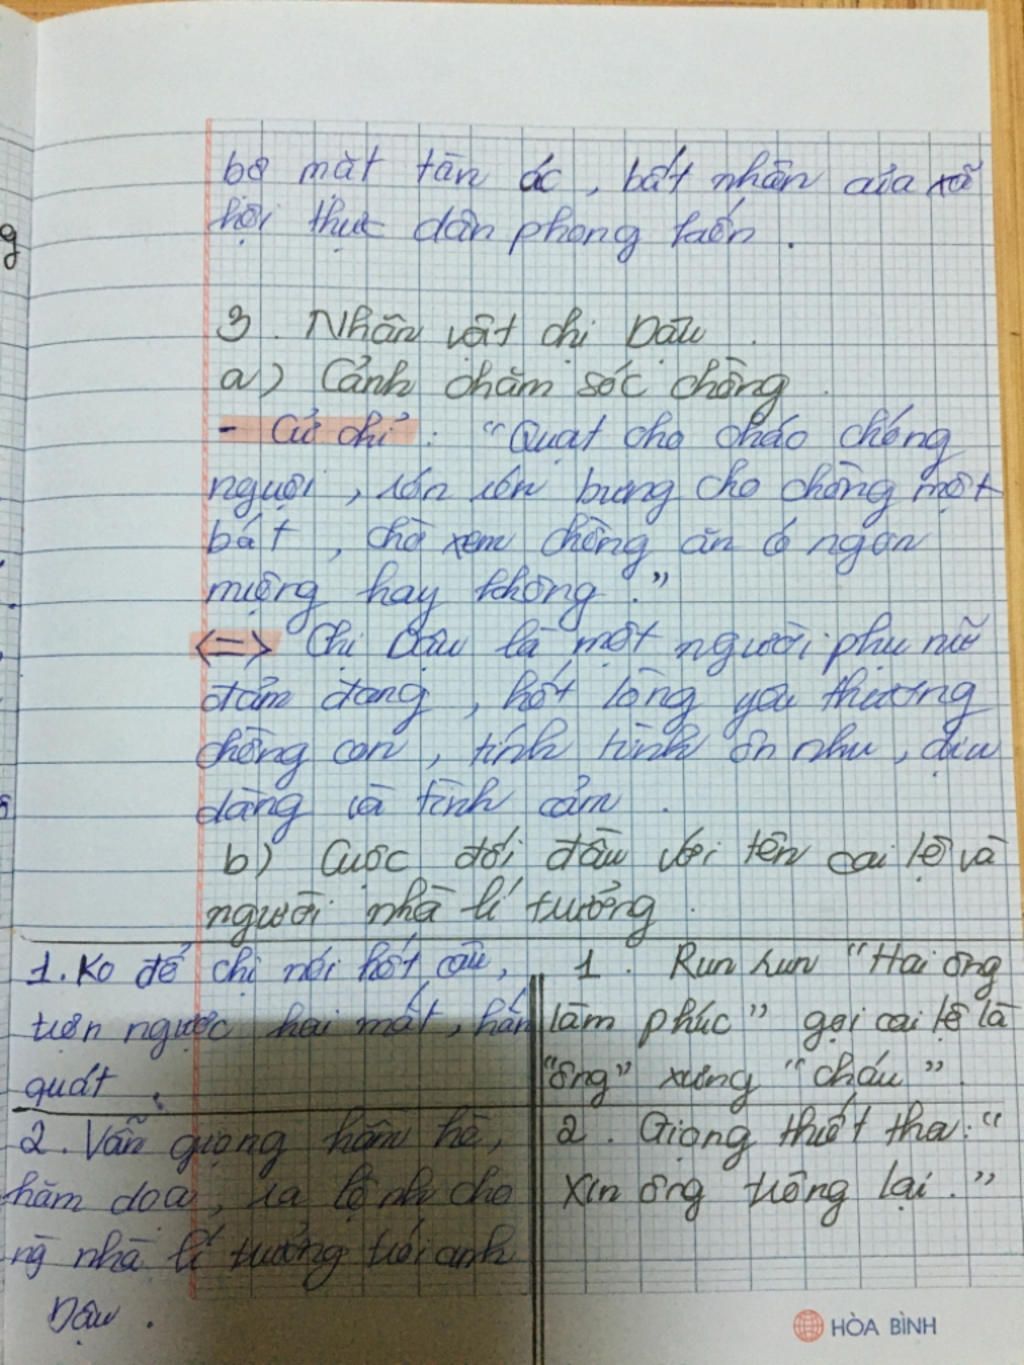 bộ mặt tàn ác, bất nhân của xã
hội thực dân phong kiến.
3. Nhân vật chị Dậu.
a) Cảnh chăm sóc chồng.
- Cử chỉ: "Quạt cho cháo chóng
nguội, rón rén bưng cho chồng một
bát, chờ xem chồng ăn có ngon
miệng hay không."
<=> Chị Dậu là một người phụ nữ
đảm đang, hết lòng yêu thương
chồng con, tính tình ôn nhu, dịu
dàng và tình cảm.
b) Cuộc đối đầu với tên cai lệ và
người nhà lí trưởng.
1. Ko để chị nói hết câu,
trợn ngược hai mắt, hắn
quát.
1. Run run "Hai ông
làm phúc" gọi cai lệ là
"ông" xưng "cháu".
2. Vẫn giọng hầm hè,
hăm dọa, ra lệnh cho
ng nhà lí trưởng trói anh
Dậu.
2. Giọng thiết tha: "
Xin ông trông lại."
HÒA BÌNH